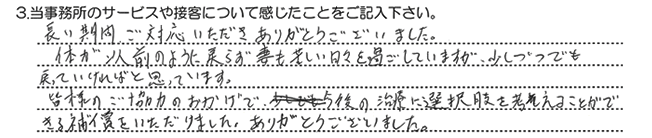 3.当事務所のサービスや接客について感じたことをご記入下さい。
長い期間、ご対応いただきありがとうございました。
体が以前のように戻らず妻も苦しい日々を過ごしていますが、少しづつでも
戻っていければと思っています。
皆様のご協力のおかげで、今後の治療に選択肢を考えることがで
きる補償をいただけました。ありがとうございました。